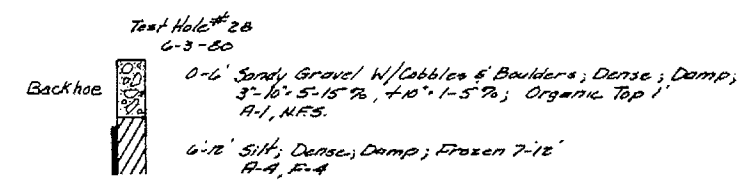 Test Hole #28
6-3-80
Backhoe
0-6' Sandy Gravel W/Cobbles & Boulders; Dense; Damp;
3"-10"= 5-15%, +10"= 1-5%; Organic Top 1'
A-1, N.F.S.
6-12' Silt; Dense; Damp; Frozen 7-12'
A-4, F-4